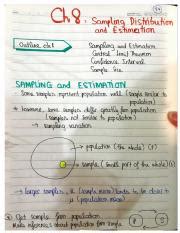 Ch 8: Sampling Distribution
and Estimation
Outline ch8
Sampling and Estimation
Central Limit Theorem
Confidence Interval
Sample Size
SAMPLING AND ESTIMATION
Some samples represent population well (sample similar to
population)
However, some samples differ greatly from population
(samples not similar to population)
sampling variation
population (the whole)
sample (small part of the whole)
larger samples,
(sample mean) tends to be closer to
μ (population mean)
Get sample from population
Make inferences about population from sample